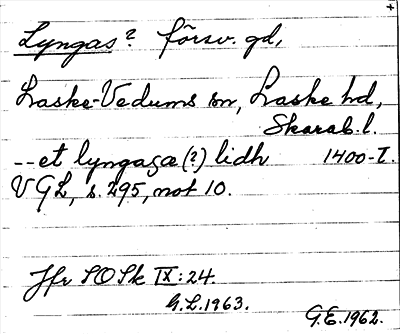 +
Lyngas? försv. gd,
Laske-Vedums sn, Laske hd,
Skarab. l.
--et lyngaza (?) lidh 1400-T.
VGL, s. 295, not 10.
Jfr SOSk IX: 24.
G.L. 1963.
G.E. 1962.